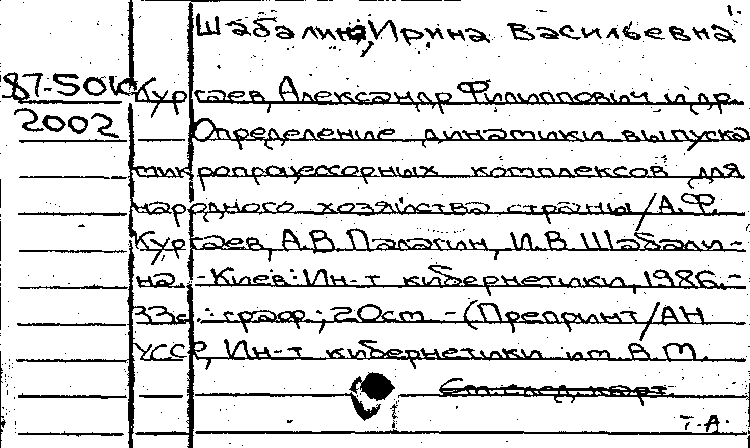 Шабалина, Ирина Васильевна
87-501
Кургаев, Александр Филиппович и др.
2002
Определение динамики выпуска
микропроцессорных комплексов для
народного хозяйства страны/А.Ф.
Кургаев, А.В. Палагин, И.В. Шабали-
на. - Киев: Ин-т кибернетики, 1986.-
33с.: граф.; 20см - (Препринт/АН
УССР, Ин-т кибернетики им В.М.
См. след. карт.
Т-А.